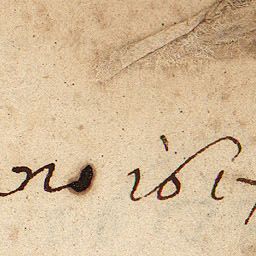 no 1617